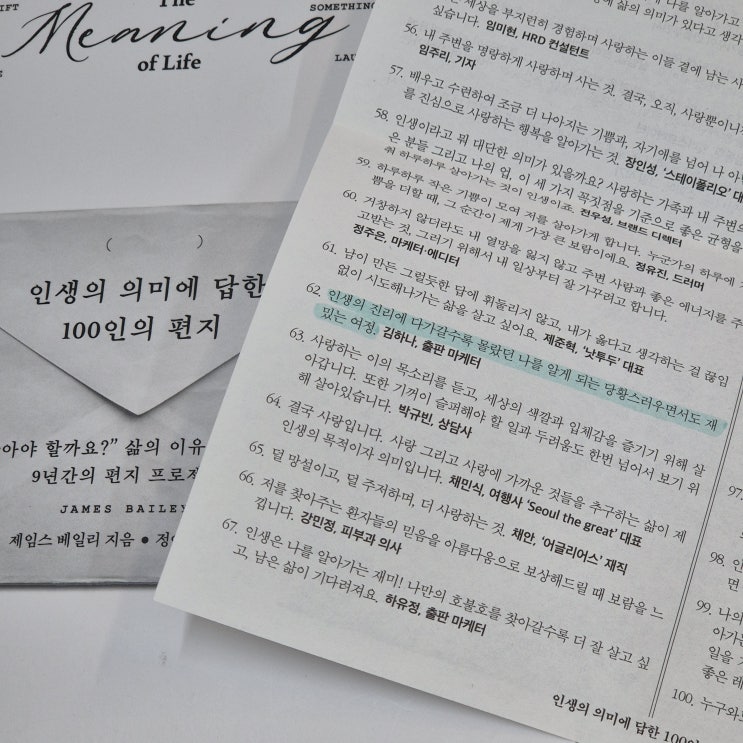 The
SOMETHING
Meaning
of Life
인생의 의미에 답한
100인의 편지
아야 할까요?" 삶의 이유
9년간의 편지 프로젝
JAMES BAILEY
제임스 베일리 지음 ● 정
에 삶의 의미가 있다고 생각
세상을 부지런히 경험하며 사랑하는 이들 곁에 남는 사
싶습니다. 임미현, HRD 컨설턴트
56. 내 주변을 명랑하게 사랑하며 사는 것. 결국, 오직, 사랑뿐이니
임주리, 기자
57. 배우고 수련하여 조금 더 나아지는 기쁨과, 자기애를 넘어 나 아
를 진심으로 사랑하는 행복을 알아가는 것. 장인성, '스테이폴리오' 대
58. 인생이라고 뭐 대단한 의미가 있을까요? 사랑하는 가족과 내 주변의
은 분들 그리고 나의 업, 이 세 가지 꼭짓점을 기준으로 좋은 균형을
춰 하루하루 살아가는 것이 인생이죠. 전우성, 브랜드 디렉터
59. 하루하루 작은 기쁨이 모여 저를 살아가게 합니다. 누군가의 하루에 기
쁨을 더할 때, 그 순간이 제게 가장 큰 보람이에요. 정유진, 드러머
60. 거창하지 않더라도 내 열망을 잃지 않고 주변 사람과 좋은 에너지를 주
고받는 것, 그러기 위해서 내 일상부터 잘 가꾸려고 합니다.
정주은, 마케터·에디터
61. 남이 만든 그럴듯한 답에 휘둘리지 않고, 내가 옳다고 생각하는 걸 끊임
없이 시도해나가는 삶을 살고 싶어요. 제준혁, '낫투두' 대표
62. 인생의 진리에 다가갈수록 몰랐던 나를 알게 되는 당황스러우면서도 재
밌는 여정. 김하나, 출판 마케터
63. 사랑하는 이의 목소리를 듣고, 세상의 색깔과 입체감을 즐기기 위해 살
아갑니다. 또한 기꺼이 슬퍼해야 할 일과 두려움도 한번 넘어서 보기 위
해 살아있습니다. 박규빈, 상담사
64. 결국 사랑입니다. 사랑 그리고 사랑에 가까운 것들을 추구하는 삶이 제
인생의 목적이자 의미입니다. 채민식, 여행사 'Seoul the great' 대표
65. 덜 망설이고, 덜 주저하며, 더 사랑하는 것. 채안, '어글리어스' 재직
66. 저를 찾아주는 환자들의 믿음을 아름다움으로 보상해드릴 때 보람을 느
낍니다. 강민정, 피부과 의사
67. 인생은 나를 알아가는 재미! 나만의 호불호를 찾아갈수록 더 잘 살고 싶
고, 남은 삶이 기다려져요. 하유정, 출판 마케터
97.
98. 인
면
99. 나의
아가는
일을
좋은 레
100. 누구와
인생의 의미에 답한 100인